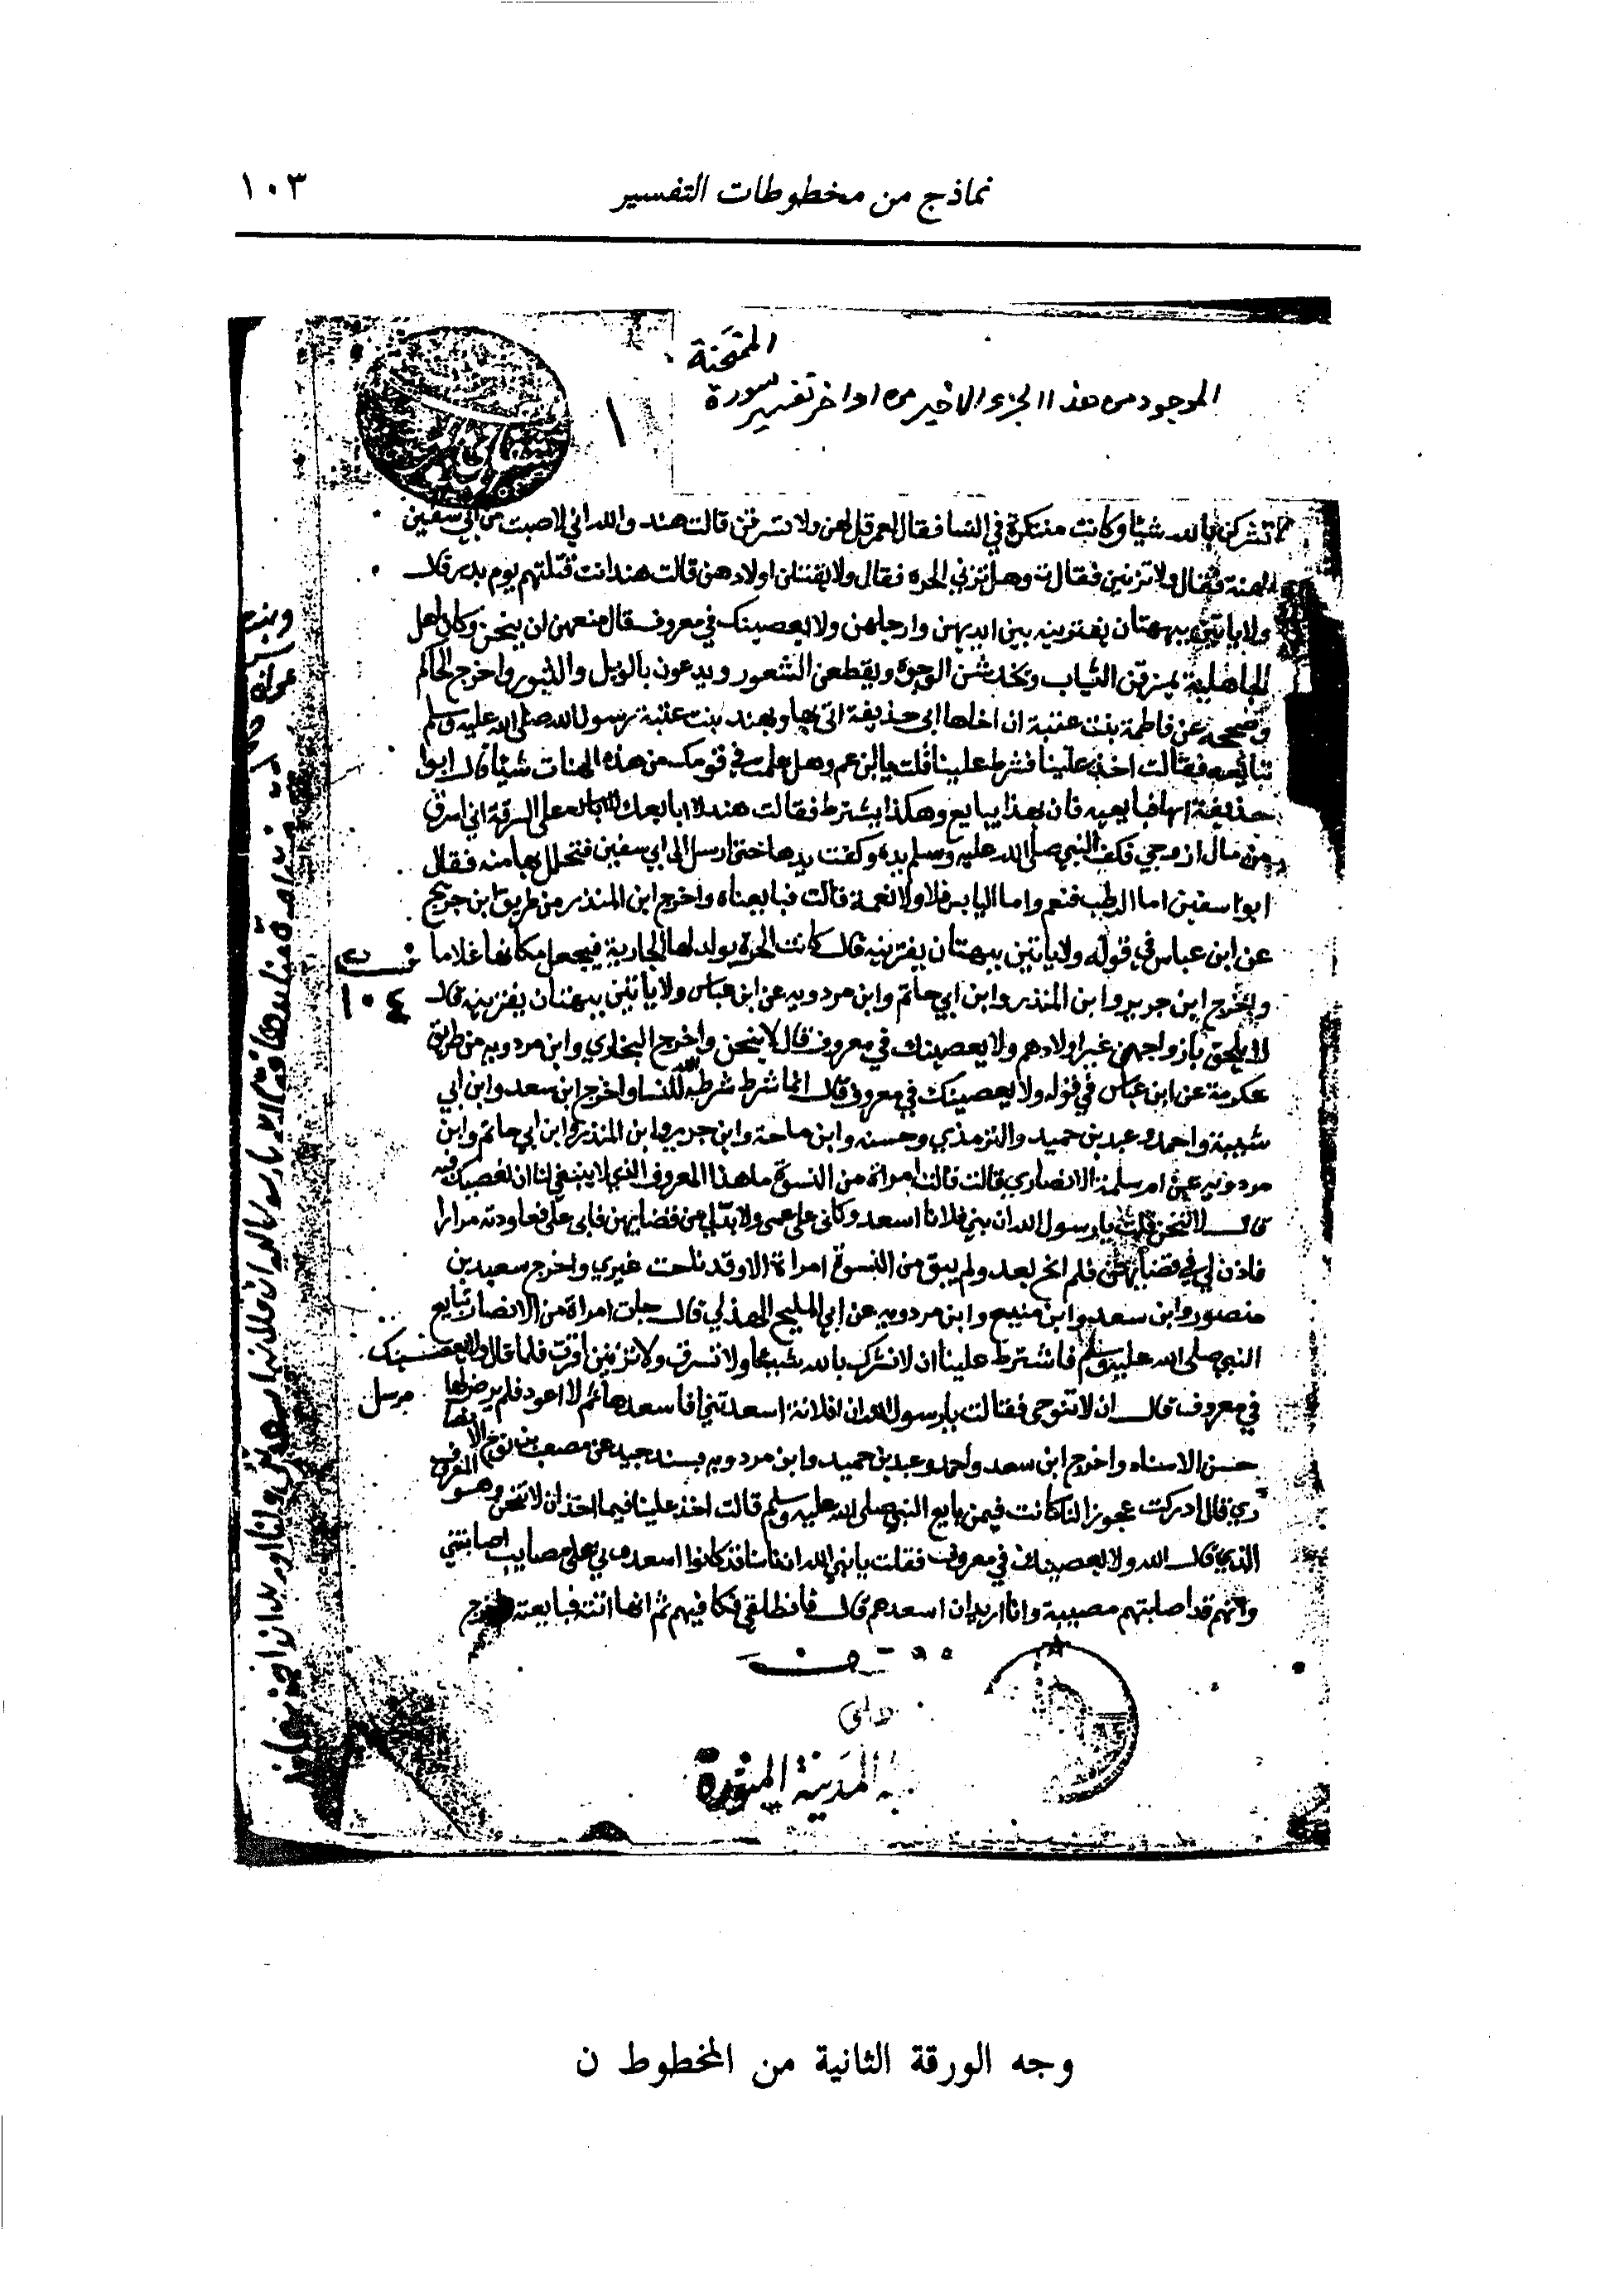 نماذج من مخطوطات التفسير
١٠٣
الممتحنة
الموجود من هذا الجزء الاخير من اواخر تفسير سورة
١
تشركن بالله شيئا وكانت متنكرة في النسا فقال لعمر قل لهن ولا تسرقن قالت هند والله اني لاصبت من ابي سفين
الهنة فقال ولا تزنين فقالت وهل تزني الحرة فقال ولا يقتلن اولادهن قالت هند انت قتلتهم يوم بدر قال
ولا ياتين ببهتان يفترينه بين ايديهن وارجلهن ولا يعصينك في معروف قال منعهن ان ينحن وكان اهل
الجاهلية يمزقن الثياب ويخدشن الوجوه ويقطعن الشعور ويدعون بالويل والثبور واخرج الحاكم
وصححه عن فاطمة بنت عتبة ان اخاها ابي حذيفة اتى بها وبهند بنت عتبة رسول الله صلى الله عليه وسلم
تبايعه فقالت اخذ علينا فشرط علينا قلت يا ابن عم وهل علمت في قومك من هذه الهنات شيئا قال ابوا
حذيفة ايها فبايعيه فان بهذا يبايع وهكذا يشترط فقالت هند لا ابايعك على السرقة اني اسرق
من مال زوجي فكف النبي صلى الله عليه وسلم يده وكفت يدها حتى ارسل الى ابي سفين فتحلل لها منه فقال
ابوا سفين اما الرطب فنعم واما اليابس فلا ولا نعمة قالت فبايعناه واخرج ابن المنذر من طريق ابن جريج
عن ابن عباس في قوله ولا ياتين ببهتان يفترينه قال كانت الحرة يولد لها الجارية فيجعل مكانها غلاما
واخرج ابن جرير وابن المنذر وابن ابي حاتم وابن مردويه عن ابن عباس ولا ياتين ببهتان يفترينه قال
١٠٤
لا يلحق بازواجهن غير اولادهم ولا يعصينك في معروف قال لا ينحن واخرج البخاري وابن مردويه من طريق
عكرمة عن ابن عباس في قوله ولا يعصينك في معروف قال انما شرط شرطه الله للنسا واخرج ابن سعد وابن ابي
شيبة واحمد وعبد بن حميد والترمذي وحسنه وابن ماجة وابن جرير وابن المنذر وابن ابي حاتم وابن
مردويه عن ام سلمة الانصاري قالت قالت امراة من النسوة ما هذا المعروف الذي لا ينبغي لنا ان نعصيك فيه
قال لا تنحن قلت يا رسول الله ان بني فلان اسعدوكاني على عمي ولا بد لي من قضايهن فابى علي فعاودته مرارا
فاذن لي في قضايهن فلم انح بعد ولم يبق من النسوة امراة الا وقد ناحت غيري واخرج سعيد بن
منصور وابن سعد وابن منيع وابن مردويه عن ابي المليح الهذلي قال جات امراة من الانصار تبايع
النبي صلى الله عليه وسلم فاشترط علينا ان لا نشرك بالله شيئا ولا نسرق ولا تزنين اقرت فلما قال ولا يعصينك
في معروف قال ان لا تنوحي فقالت يا رسول الله ان فلانة اسعدتني افاسعدها ثم لا اعود فلم يرخص لها مرسل
حسن الاسناد واخرج ابن سعد واحمد وعبد بن حميد وابن مردويه بسند جيد عن مصعب بن نوح الانصا
ري قال ادركت عجوز لنا كانت فيمن بايع النبي صلى الله عليه وسلم قالت اخذ علينا فيما اخذ ان لا تنحن وهو المعروف
الذي قال الله ولا يعصينك في معروف فقلت يا نبي الله ان ناسا قد كانوا اسعدوني على مصايب اصابتني
وانهم قد اصابتهم مصيبة وانا اريد ان اسعدهم قال فانطلقي فكافيهم ثم انها اتت فبايعته واخرج
المدينة المنورة
وجه الورقة الثانية من المخطوط ن